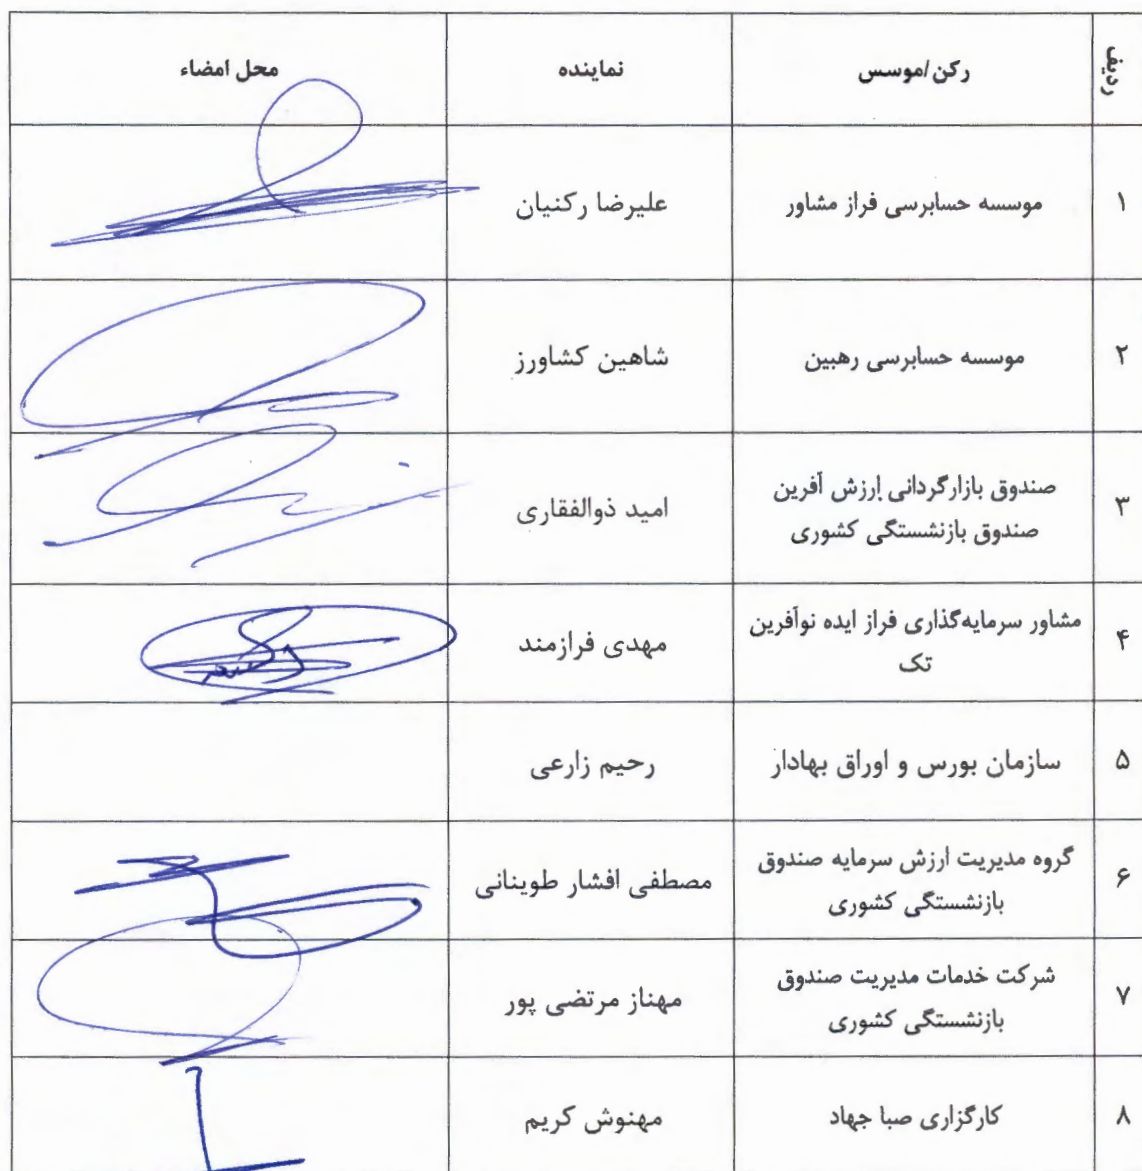 ردیف رکن/موسس نماینده محل امضاء
۱ موسسه حسابرسی فراز مشاور علیرضا رکنیان
۲ موسسه حسابرسی رهبین شاهین کشاورز
۳ صندوق بازارگردانی ارزش آفرین
صندوق بازنشستگی کشوری امید ذوالفقاری
۴ مشاور سرمایه‌گذاری فراز ایده نوآفرین
تک مهدی فرازمند
۵ سازمان بورس و اوراق بهادار رحیم زارعی
۶ گروه مدیریت ارزش سرمایه صندوق
بازنشستگی کشوری مصطفی افشار طوینانی
۷ شرکت خدمات مدیریت صندوق
بازنشستگی کشوری مهناز مرتضی پور
۸ کارگزاری صبا جهاد مهنوش کریم